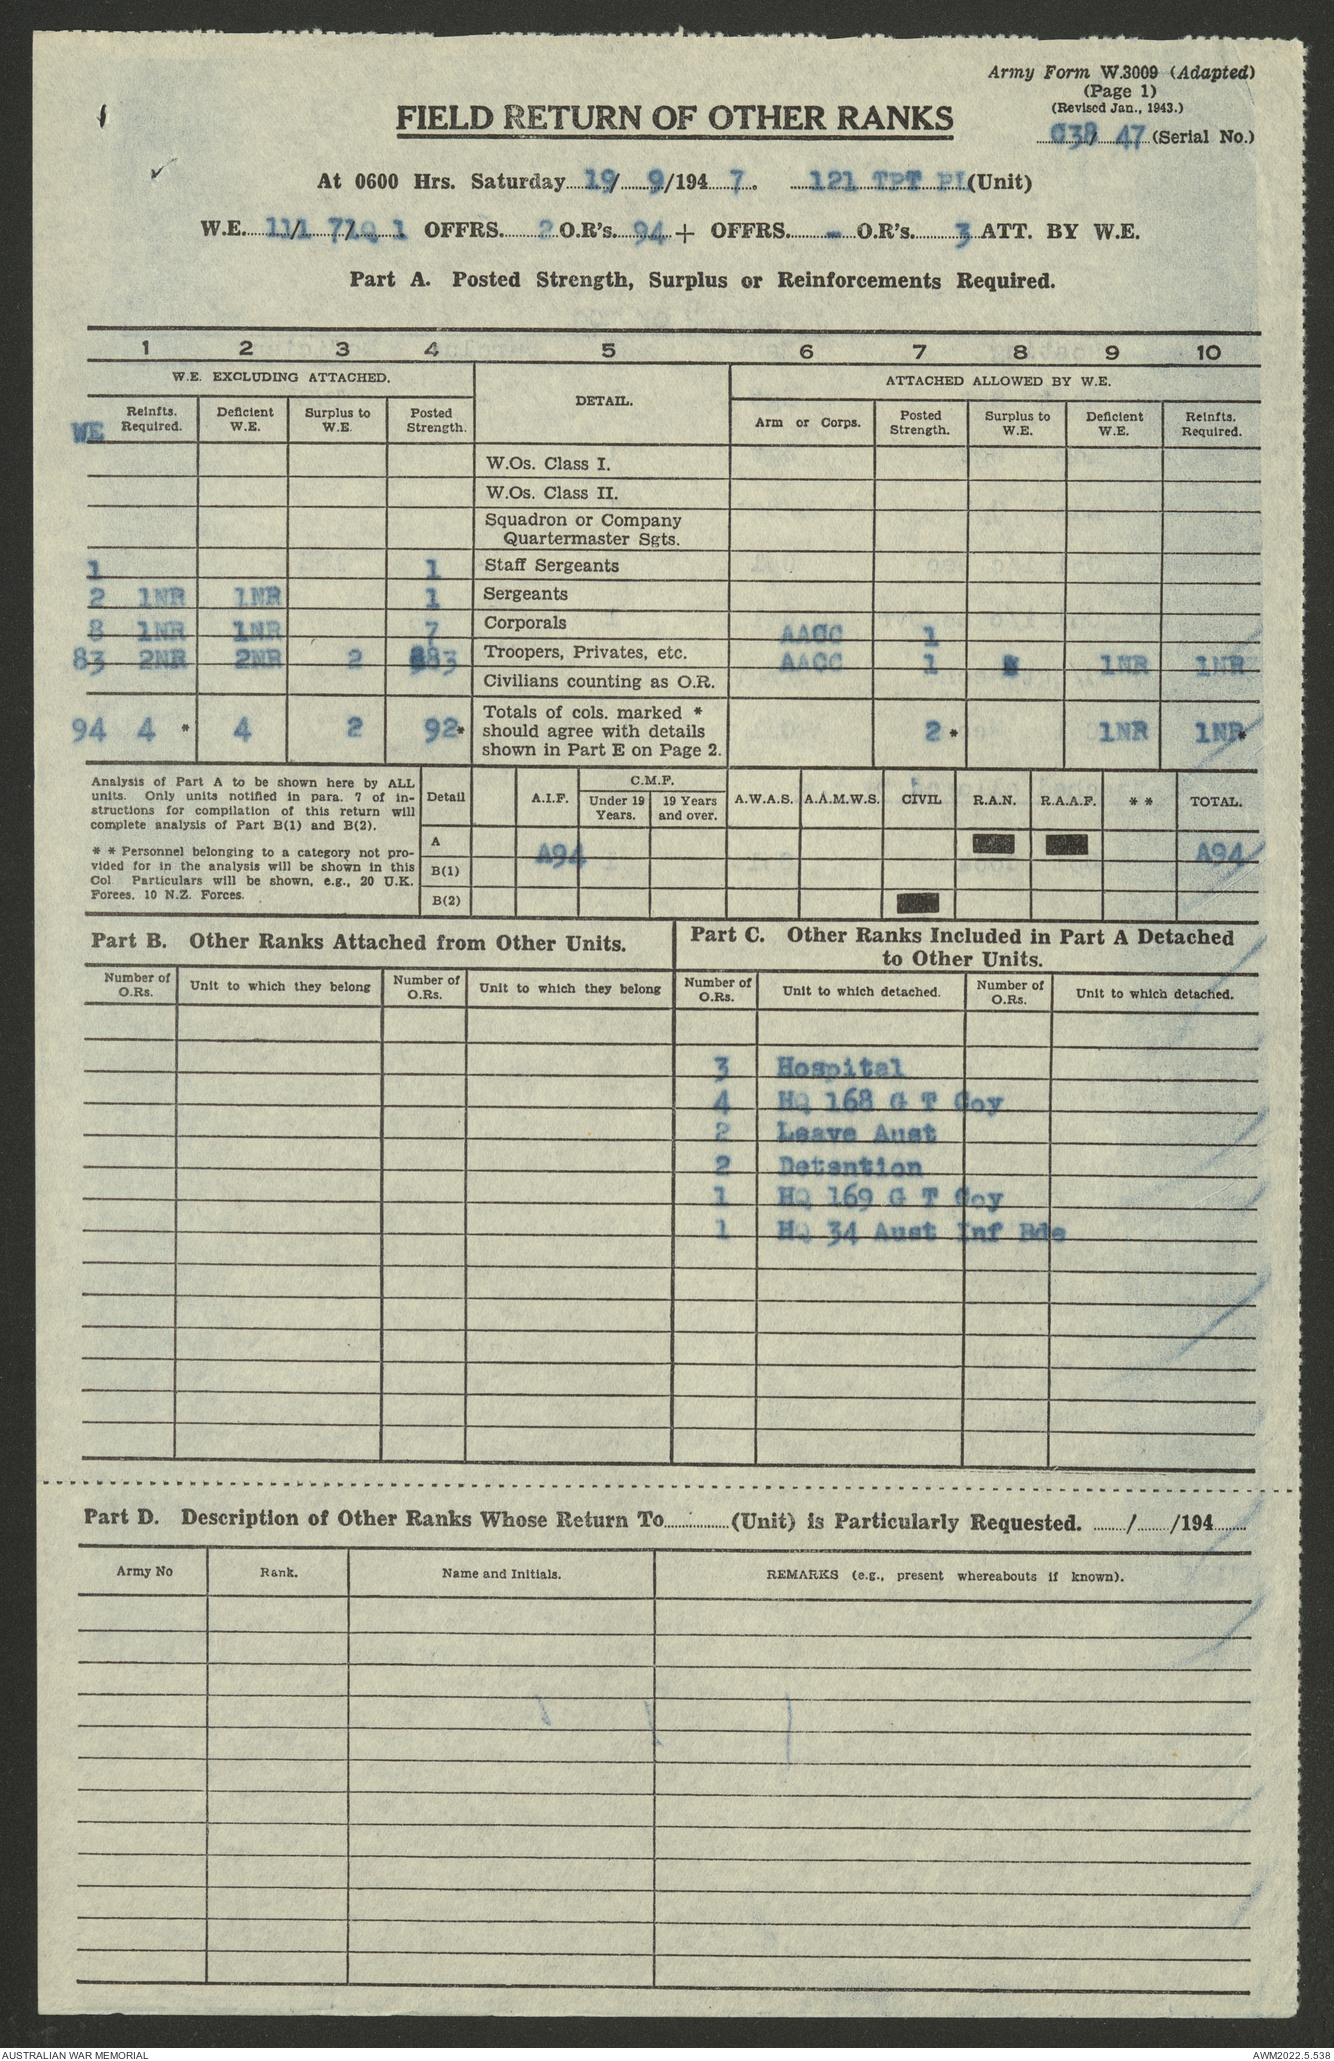 Army Form W.3009 (Adapted)
(Page 1)
(Revised Jan., 1943.)
FIELD RETURN OF OTHER RANKS
038/ 47 (Serial No.)
At 0600 Hrs. Saturday 19/ 9/194 7. 121 TPT PL (Unit)
W.E. 11/1 7/1Q 1 OFFRS. 2 O.R's. 94 + OFFRS. - O.R's. 3 ATT. BY W.E.
Part A. Posted Strength, Surplus or Reinforcements Required.
1 2 3 4 5 6 7 8 9 10
W.E. EXCLUDING ATTACHED. DETAIL. ATTACHED ALLOWED BY W.E.
WE Reinfts. Required. Deficient W.E. Surplus to W.E. Posted Strength. Arm or Corps. Posted Strength. Surplus to W.E. Deficient W.E. Reinfts. Required.
W.Os. Class I.
W.Os. Class II.
Squadron or Company
Quartermaster Sgts.
1 1 Staff Sergeants
2 1NR 1NR 1 Sergeants
8 1NR 1NR 7 Corporals AACC 1
83 2NR 2NR 2 83 Troopers, Privates, etc. AACC 1 1NR 1NR
Civilians counting as O.R.
94 4 * 4 2 92* Totals of cols. marked * should agree with details shown in Part E on Page 2. 2 * 1NR 1NR*
Analysis of Part A to be shown here by ALL
units. Only units notified in para. 7 of in-
structions for compilation of this return will
complete analysis of Part B(1) and B(2).
* * Personnel belonging to a category not pro-
vided for in the analysis will be shown in this
Col. Particulars will be shown, e.g., 20 U.K.
Forces, 10 N.Z. Forces.
Detail A.I.F. C.M.F. Under 19 Years. 19 Years and over. A.W.A.S. A.A.M.W.S. CIVIL R.A.N. R.A.A.F. * * TOTAL.
A A94 A94
B(1)
B(2)
Part B. Other Ranks Attached from Other Units.
Part C. Other Ranks Included in Part A Detached
to Other Units.
Number of O.Rs. Unit to which they belong Number of O.Rs. Unit to which they belong Number of O.Rs. Unit to which detached. Number of O.Rs. Unit to which detached.
3 Hospital
4 HQ 168 G T Coy
2 Leave Aust
2 Detention
1 HQ 169 G T Coy
1 HQ 34 Aust Inf Bde
Part D. Description of Other Ranks Whose Return To (Unit) is Particularly Requested. / /194
Army No Rank. Name and Initials. REMARKS (e.g., present whereabouts if known).
AUSTRALIAN WAR MEMORIAL AWM2022.5.538